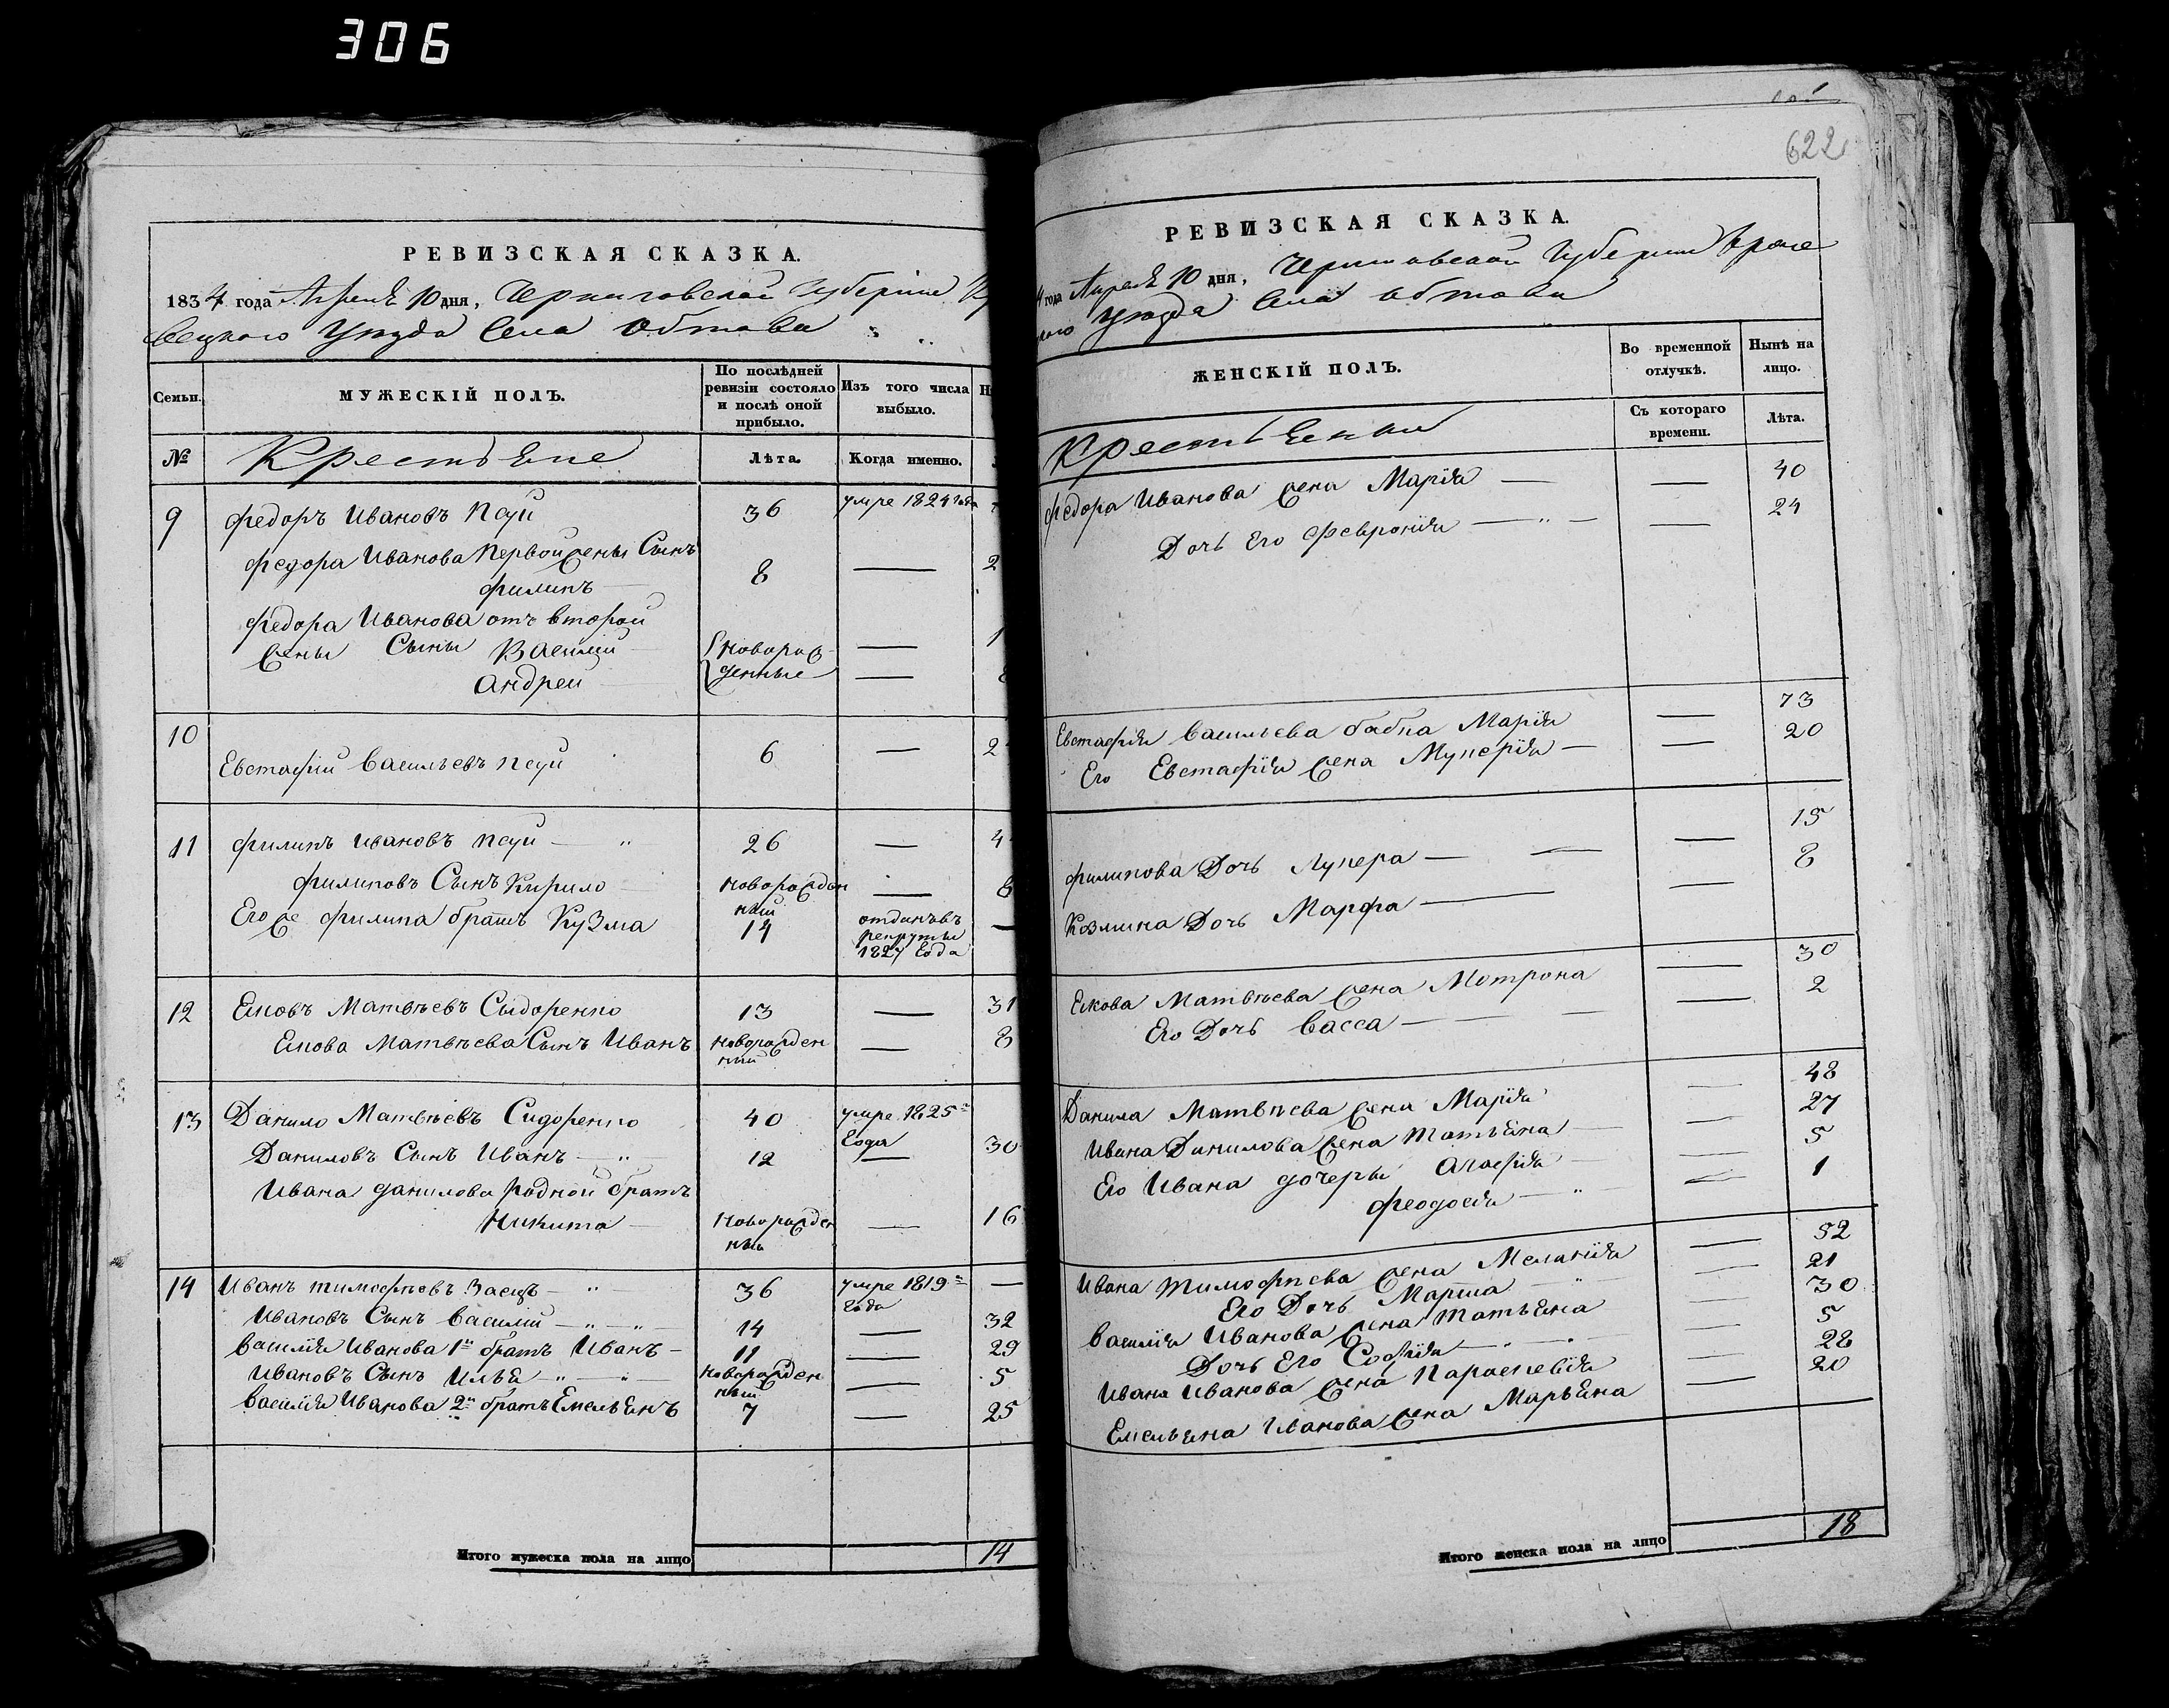 306
РЕВИЗСКАЯ СКАЗКА.
1834 года Апреля 10 дня, Черниговской Губернии
вецкого Уезда Села Обтова
Семьи.
МУЖЕСКІЙ ПОЛЪ.
По послѣдней ревизіи состояло и послѣ оной прибыло.
Изъ того числа выбыло.
№
Крестьяне
Лѣта.
Когда именно.
9 Федоръ Ивановъ Псуй 36 умре 1824 года
Федора Иванова Первой жены Сынъ
Филипъ — 8 — 2
Федора Иванова отъ второй
жены Сыны Василий — новорож- — 1
Андрей — денные — 8
10 Евстафий Васильевъ Псуй 6 — 2
11 Филипъ Ивановъ Псуй — „ 26 — 4
Филиповъ Сынъ Кирило — новорожден ный — 8
Его же Филипа братъ Кузма 14 отданъ въ рекруты 1827 Года —
12 Яковъ Матвѣевъ Сыдоренко 13 — 31
Якова Матвѣева Сынъ Иванъ новорожден ный — 8
13 Данило Матвѣевъ Сидоренко 40 умре 1825 Года
Даниловъ Сынъ Иванъ — „ 12 — 30
Ивана данилова родной братъ
Никита — новорожден ный — 16
14 Иванъ Тимофѣевъ Заецъ — „ — 36 умре 1819 года —
Ивановъ Сынъ Василий — „ — „ 14 — 32
Василия Иванова 1й братъ Иванъ — 11 — 29
Ивановъ Сынъ Илья — „ — „ — новорожден ный — 5
Василия Иванова 2й братъ Емельянъ 7 — 25
Итого мужеска пола на лицо 14
622
РЕВИЗСКАЯ СКАЗКА.
4 года Апреля 10 дня, Черниговской Губернии Кроле
Уезда Села Обтова
ЖЕНСКІЙ ПОЛЪ.
Во временной отлучкѣ.
Нынѣ на лицо.
Съ котораго времени.
Лѣта.
Крестьянки
Федора Иванова жена Марія — — 40
Дочь Его Февронія — „ — — 24
Евстафия Васильева бабка Марія — 73
Его Евстафия жена Гликерія — — 20
Филипова Дочь Лукера — — — 15
Козмина Дочь Марфа — — 8
Якова Матвѣева жена Мотрона — 30
Его Дочь Васса — — — 2
Данила Матвѣева жена Марія — 48
Ивана Данилова жена Татьяна — — 27
Его Ивана дочеры Агафія — — 5
Феодосія — „ — 1
Ивана Тимофѣева жена Меланія — 52
Его Дочь Марта „ — 21
Василия Иванова жена Татьяна — 30
Дочь Его Софія — „ — — 5
Ивана Иванова жена Параскевія — 28
Емельяна Иванова жена Марьяна — 20
Итого женска пола на лицо 18